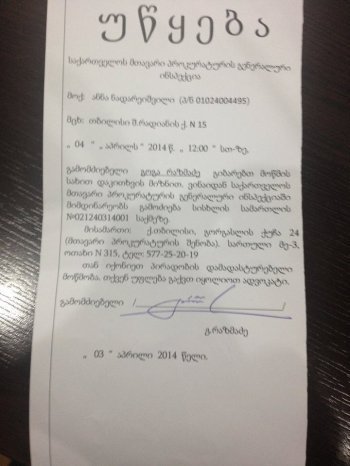 უწყება
საქართველოს მთავარი პროკურატურის გენერალური
ინსპექცია
მოქ: ანნა ნადარეიშვილი (პ/ნ 01024004495)
მცხ: თბილისი შ.რადიანის ქ. N 15
„ 04 “ „ აპრილს “ 2014 წ. „ 12:00 “ სთ-ზე,
გამომძიებელი გოგა რაზმაძე გიბარებთ მოწმის
სახით დაკითხვის მიზნით, ვინაიდან საქართველოს
მთავარი პროკურატურის გენერალური ინსპექციაში
მიმდინარეობს გამოძიება სისხლის სამართლის
№021240314001 საქმეზე.
მისამართი: ქ.თბილისი, გორგასლის ქუჩა 24
(მთავარი პროკურატურის შენობა). სართული მე-3,
ოთახი N 315, ტელ: 577-25-20-19
თან იქონიეთ პირადობის დამადასტურებელი
მოწმობა. თქვენ უფლება გაქვთ იყოლიოთ ადვოკატი.
გამომძიებელი
გ.რაზმაძე
„ 03 “ აპრილი 2014 წელი.